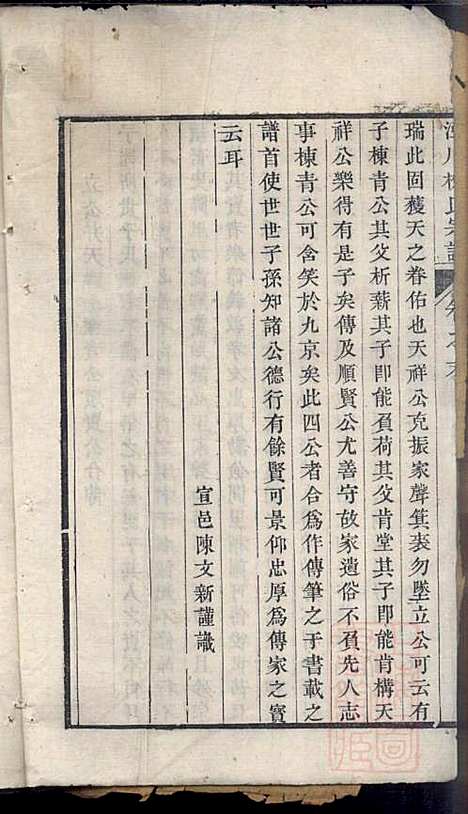 氏宗譜
瑞此固穫天之眷佑也天祥公克振家聲箕裘勿墜立公可云有
子棟青公其父析薪其子即能負荷其父肯堂其子即能肯構天
祥公樂得有是子矣傳及順賢公尤善守故家遺俗不負先人志
事棟青公可含笑於九京矣此四公者合為作傳筆之于書載之
譜首使世世子孫知諸公德行有餘賢可景仰忠厚為傳家之寶
云耳
宣邑陳文新謹識